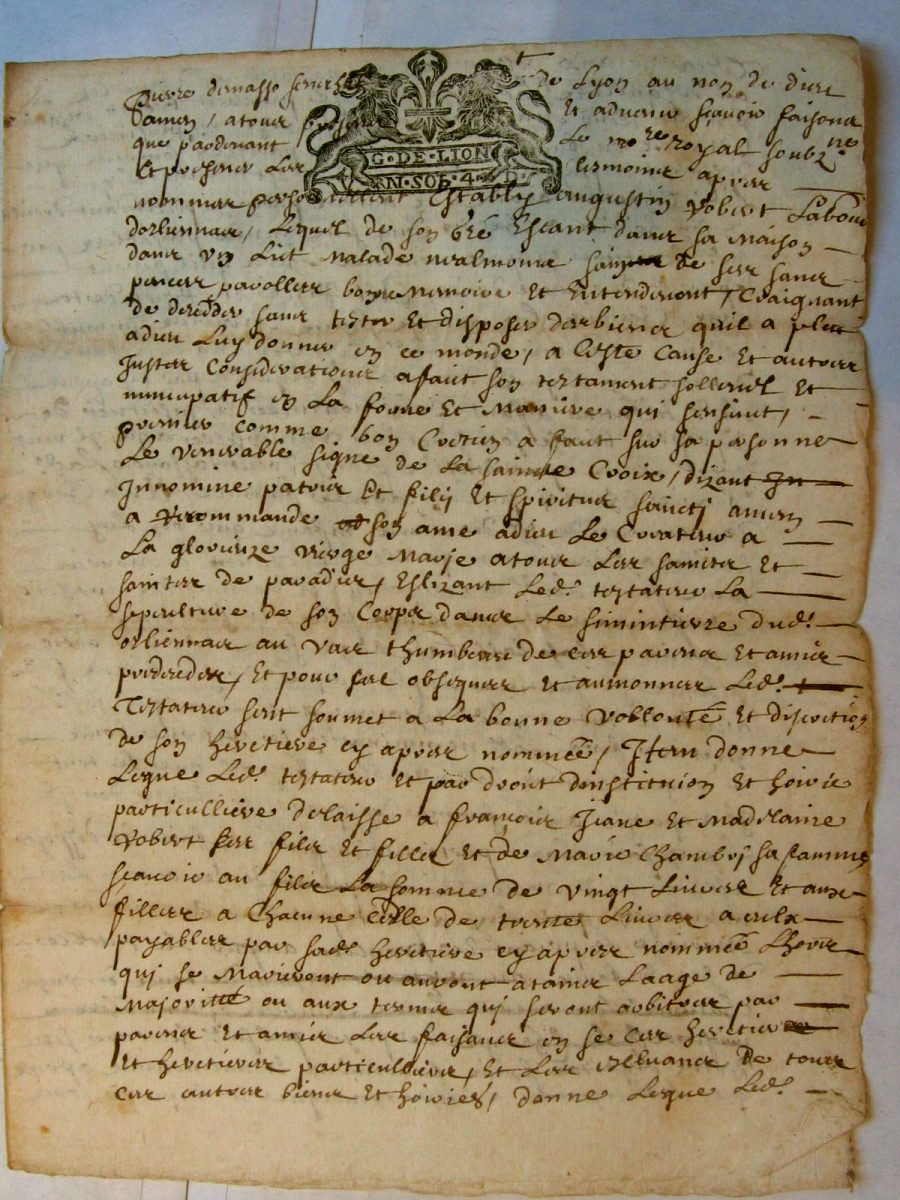 Pierre demasso senech de Lyon au nom de dieu
Damen, a tous et advenir sçavoir faisons
que pardevant Le no.re royal soubz.né
Et presener Les tesmoins apres
G·DE·LION
N·SOL·4·D
nommes personnellement Estably augustin robert Labour
dorliennas, Lequel de son Gré Estant dans sa Maison
dans un Lict Malade neaulmoins sain de ses sans
pences parolles bonne memoire Et Entendement, Craignant
de deceder sans tester Et disposer desbiens quil a pleu
adieu Luy donner en ce monde, a Ceste Cause Et autres
Justes Considerations a faict son testament sollemel Et
nuncupatif en La forme Et Maniere qui sensuit,
premier comme bon Cretien a faict sur sa personne
Le venerable signe de La saincte Croix, dizant In
Innomine patris Et filij Et spiritus sancti amen
a recommande son ame adieu Le Createur a
La glorieuze vierge Marie atous Les saincts Et
sainctes de paradis, Eslizant Led. testateur La
sepulture de son Corps dans Le simintierre dud.
orliennas au vas thumbeau de ces parens Et amis
predecedes, Et pour ses obseques Et aumonnes Led.
Testateur sent soumet a La bonne vollonté Et discretion
de son heretiere cy apres nommée, Item donne
Legue Led. testateur Et par droit dinstitution Et hoirie
particulliere delaisse a francois Jeane Et Madelaine
robert ses fils Et filles Et de Marie Chambrj sa famme
scavoir au fils La somme de vingt Livres Et aux
filles a Chacune Celle de trente Livres a eulx
payables par sad. heretiere cy apres nommée Lhors
qui se Marieront ou auront ataint Laage de
Majorité ou aux termes qui seront arbitres par
parens Et amis Les faisant en se ces heretiers
Et heretieres particulliers, Et Les Excluant de tous
ces autres biens Et hoiries, donne Legue Led.